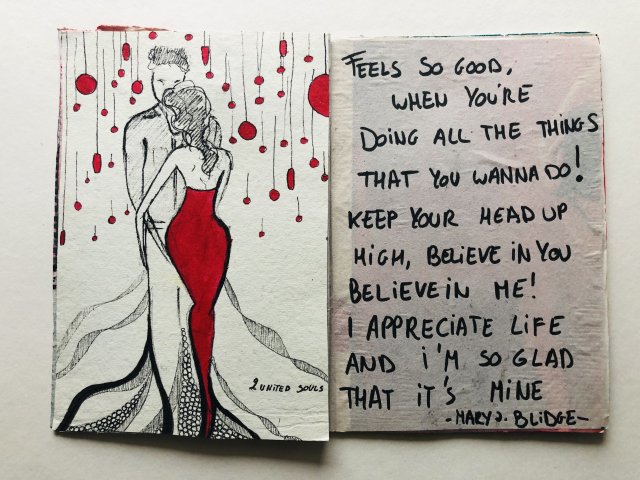 2 UNITED SOULS
FEELS SO GOOD,
WHEN YOU'RE
DOING ALL THE THINGS
THAT YOU WANNA DO!
KEEP YOUR HEAD UP
HIGH, BELIEVE IN YOU
BELIEVE IN ME!
I APPRECIATE LIFE
AND I'M SO GLAD
THAT IT'S MINE
-MARY J. BLIDGE-